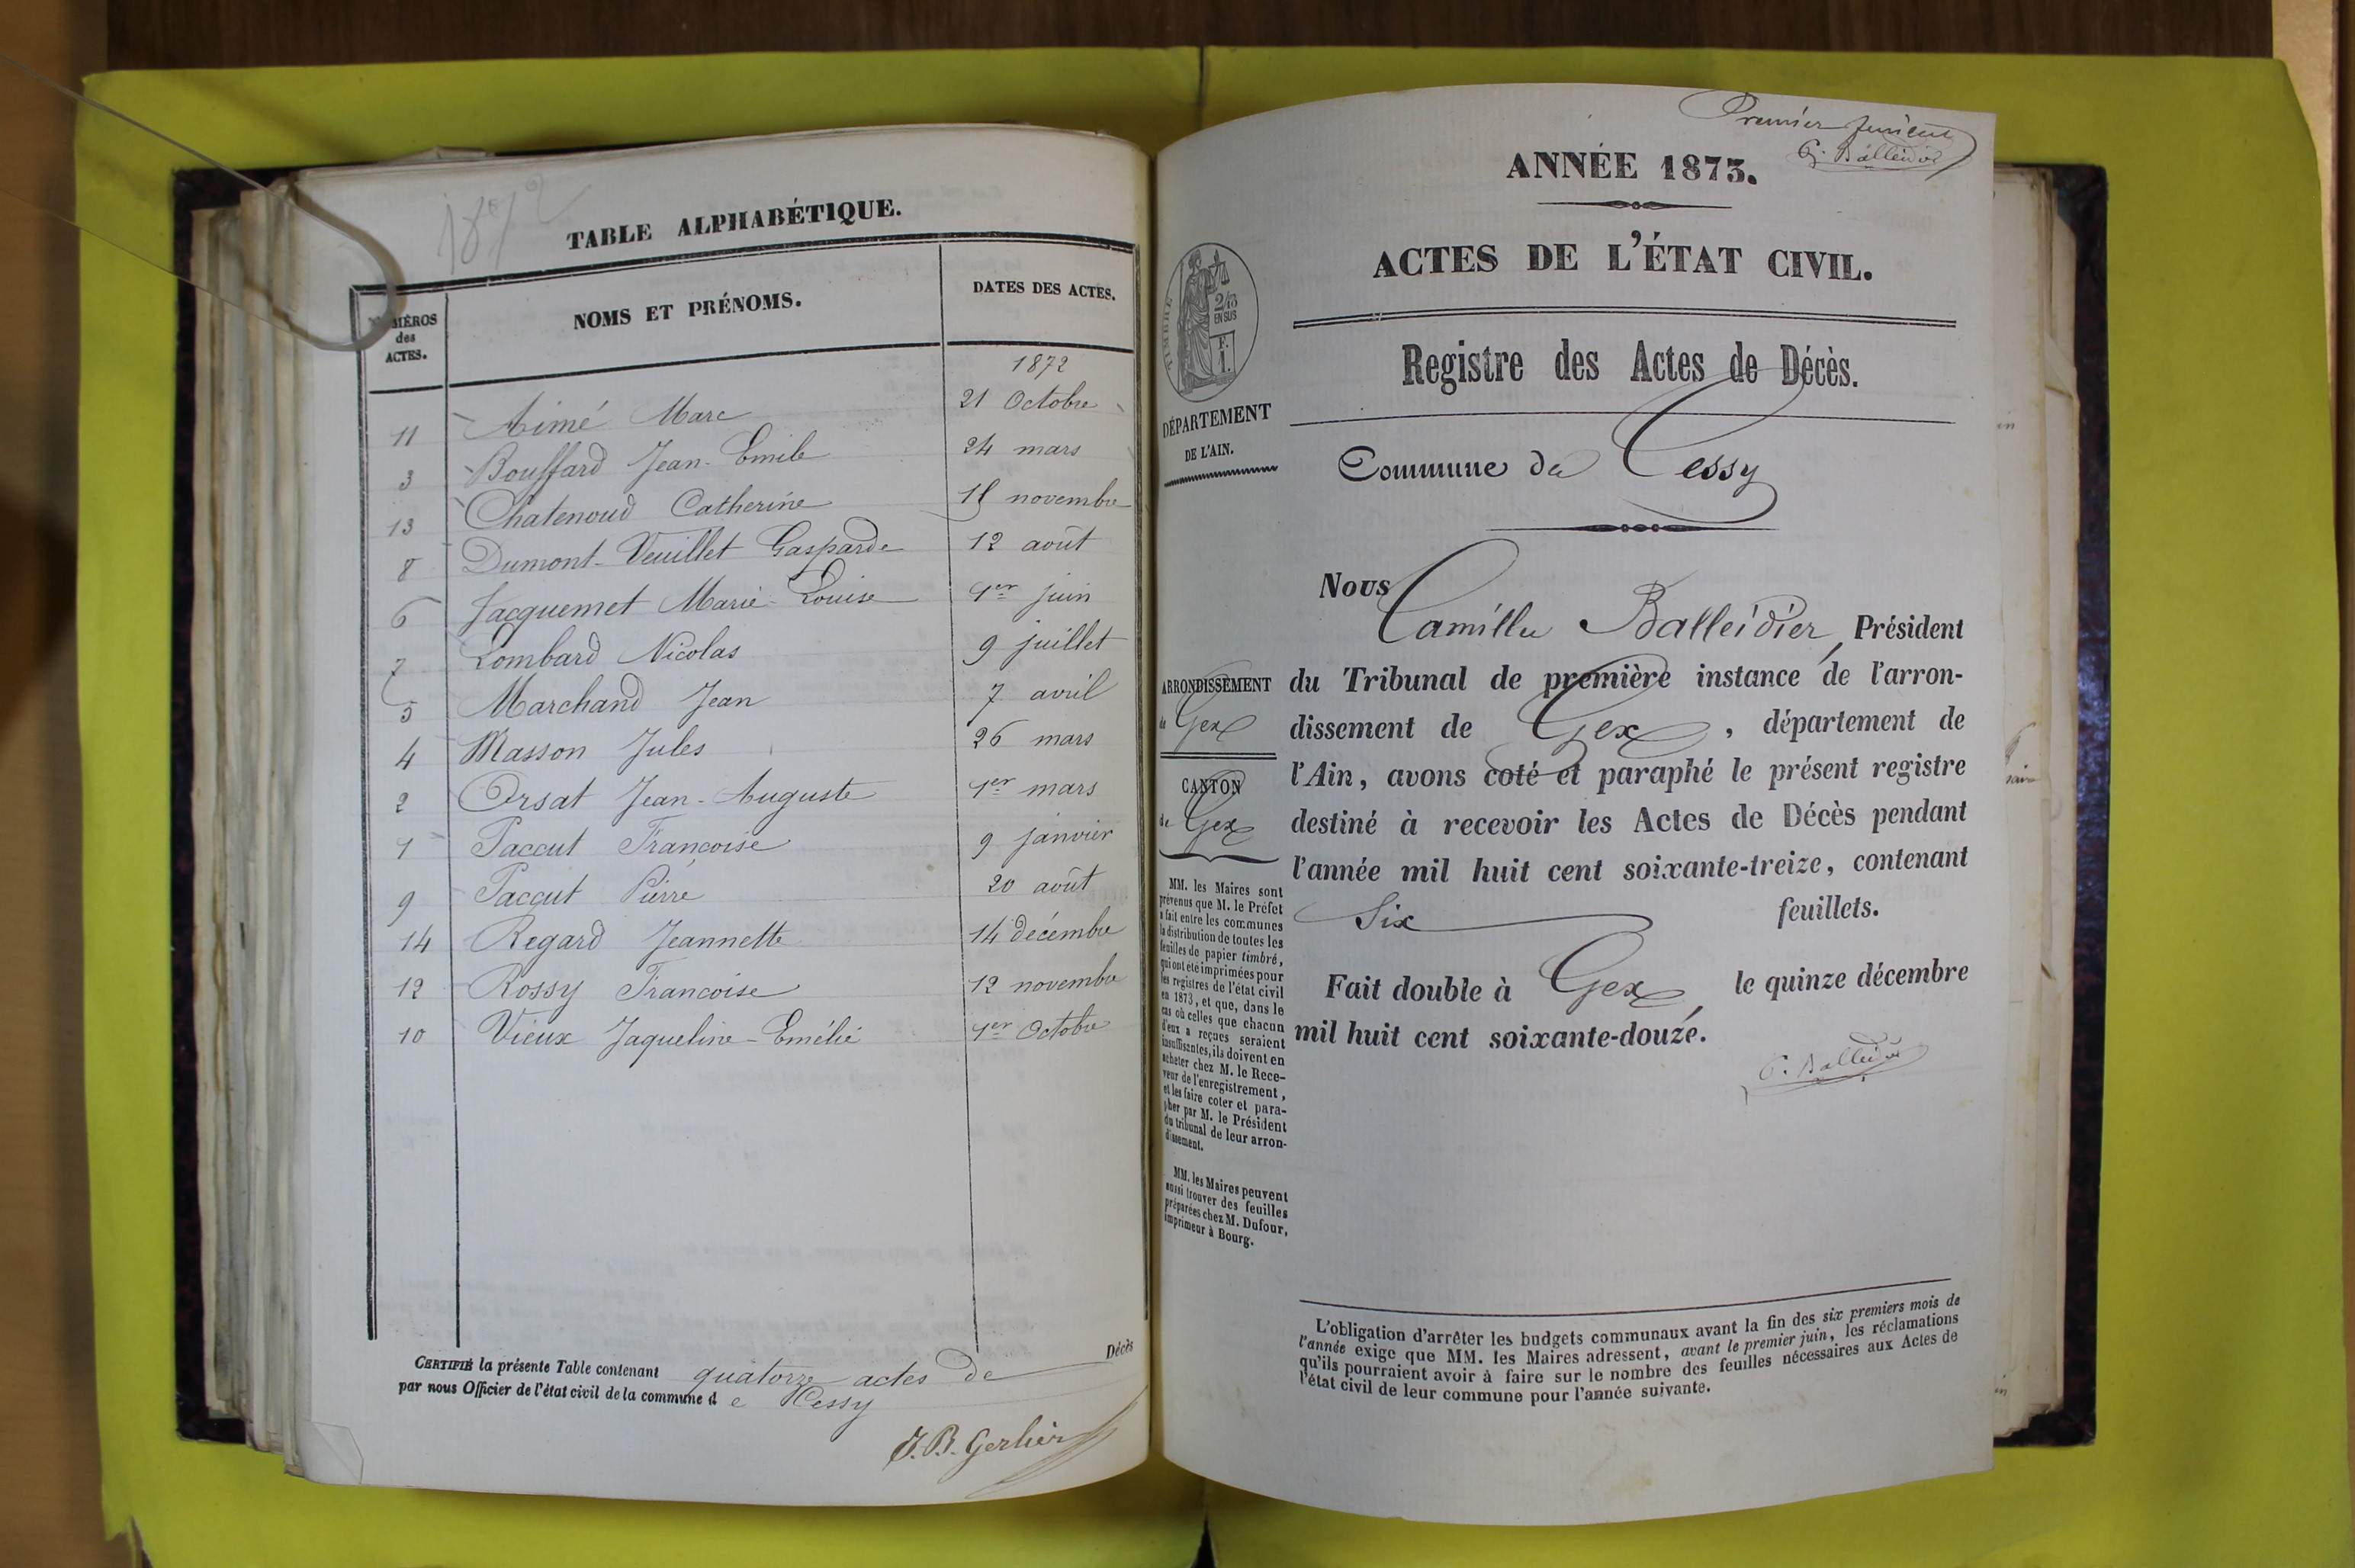 1872
TABLE ALPHABÉTIQUE.
NUMÉROS des ACTES.
NOMS ET PRÉNOMS.
DATES DES ACTES.
1872
11 Aimé Marc 21 Octobre
3 Bouffard Jean-Emile 24 mars
13 Chatenoud Catherine 18 novembre
8 Dumont-Veuillet Gasparde 12 août
6 Jacquemet Marie-Louise 1er juin
7 Lombard Nicolas 9 juillet
5 Marchand Jean 7 avril
4 Masson Jules 26 mars
2 Orsat Jean-Auguste 1er mars
1 Paccut Françoise 9 janvier
9 Paccut Pierre 20 août
14 Regard Jeannette 14 décembre
12 Rossy Francoise 12 novembre
10 Vieux Jaqueline-Emélie 1er Octobre
Décès
CERTIFIÉ la présente Table contenant quatorze actes de
par nous Officier de l'état civil de la commune d e Cessy
J. B. Gerlier
Premier feuillet
C. Balleidier
ANNÉE 1873.
ACTES DE L'ÉTAT CIVIL.
TIMBRE
2/10
EN SUS
F.
1.
Registre des Actes de Décès.
DÉPARTEMENT
DE L'AIN.
Commune de Cessy
Nous Camille Balleidier, Président
du Tribunal de première instance de l'arron-
dissement de Gex, département de
l'Ain, avons coté et paraphé le présent registre
destiné à recevoir les Actes de Décès pendant
l'année mil huit cent soixante-treize, contenant
Six feuillets.
Fait double à Gex, le quinze décembre
mil huit cent soixante-douze.
C. Balleidier
ARRONDISSEMENT
de Gex
CANTON
de Gex
MM. les Maires sont
prévenus que M. le Préfet
a fait entre les communes
la distribution de toutes les
feuilles de papier timbré,
qui ont été imprimées pour
les registres de l'état civil
en 1873, et que, dans le
cas où celles que chacun
d'eux a reçues seraient
insuffisantes, ils doivent en
acheter chez M. le Rece-
veur de l'enregistrement,
et les faire coter et para-
pher par M. le Président
du tribunal de leur arron-
dissement.
MM. les Maires peuvent
aussi trouver des feuilles
préparées chez M. Dufour,
imprimeur à Bourg.
L'obligation d'arrêter les budgets communaux avant la fin des six premiers mois de
l'année exige que MM. les Maires adressent, avant le premier juin, les réclamations
qu'ils pourraient avoir à faire sur le nombre des feuilles nécessaires aux Actes de
l'état civil de leur commune pour l'année suivante.